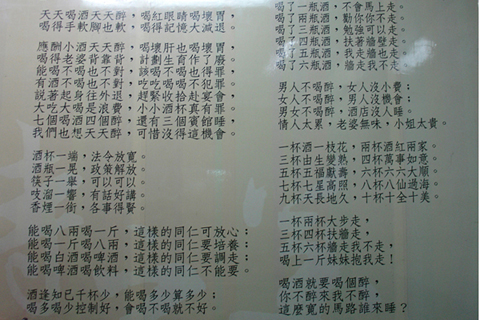 天天喝酒天天醉，喝紅眼睛喝壞胃，
喝得手軟腳也軟，喝得記憶大減退。
喝得老婆背靠背，
能喝不喝也不對，
我們也想天天睡，還有沒有機會
酒杯一端，法令放寬。
酒瓶一晃，政策解放
筷子一舉，可以可以
吱溜一響，有話好講
香煙一銜，各事得賢
能喝八兩喝一斤，這樣的同仁可放心；
能喝一斤喝八兩，這樣的同仁要培養；
能喝白酒喝啤酒，這樣的同仁要調走；
能喝啤酒喝飲料，這樣的同仁不能要。
酒逢知己千杯少，能喝多少算多少；
喝多喝少控制好，會喝不喝就不好。
喝了一瓶酒，不會馬上走。
喝了二瓶酒，勸你你不走
喝了三瓶酒，勉強可以走
喝了四瓶酒，扶著牆壁走
喝了五瓶酒，我走牆也走
喝了六瓶酒，牆走我不走
男人不喝醉，女人沒小費；
女人不喝醉，男人沒機會；
男女不喝醉，酒店沒人睡。
情人太累，老婆無味，小姐太貴。
一杯酒一枝花，兩杯酒紅兩家。
三杯由生變熟，四杯萬事如意。
五杯五福獻壽，六杯六六大順。
七杯七星高照，八杯八仙過海。
九杯天長地久，十杯十全十美。
一杯兩杯大步走，
三杯四杯扶牆走，
五杯六杯牆走我不走，
喝上一斤妹妹抱我走！
喝酒就要喝個醉，
你不醉來我不醉，
這麼寬的馬路誰來睡？